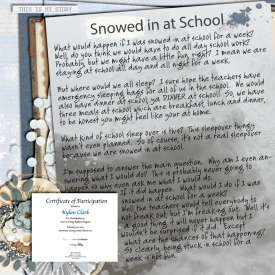 THIS IS MY STORY
Snowed in at School
What would happen if I was snowed in at school for a week?
Well, do you think we would have to do all day school work?
Probably, but we might have a little fun, right? I mean we are
staying at school all day and all night for a week.
But where would we all sleep? I sure hope the teachers have
emergency sleeping bags for all of us in the school. We would
also have dinner at school, ya DINNER at school! So, we have
three meals at school which are breakfast, lunch and dinner,
to be honest you might feel like your at home.
What kind of school sleep over is this? This sleepover thingy
wasn't even planned. So of course, it's not a real sleepover
because we are snowed in at school.
I'm supposed to answer the main question. Why am I even an-
swering what I would do? This is probably never going to
happen so why even ask me what I would do.
if it did happen. What would I do if I was
snowed in at school for a week?
Well the teachers would tell everybody to
not freak out, but I'm freaking out. Well it's
a good thing it will never happen but I
wouldn't be surprised if it did. Except
what are the chances of that happening?
So clearly, being stuck in school for a
week is not fun.
Certificate of Participation
Kylan Clark